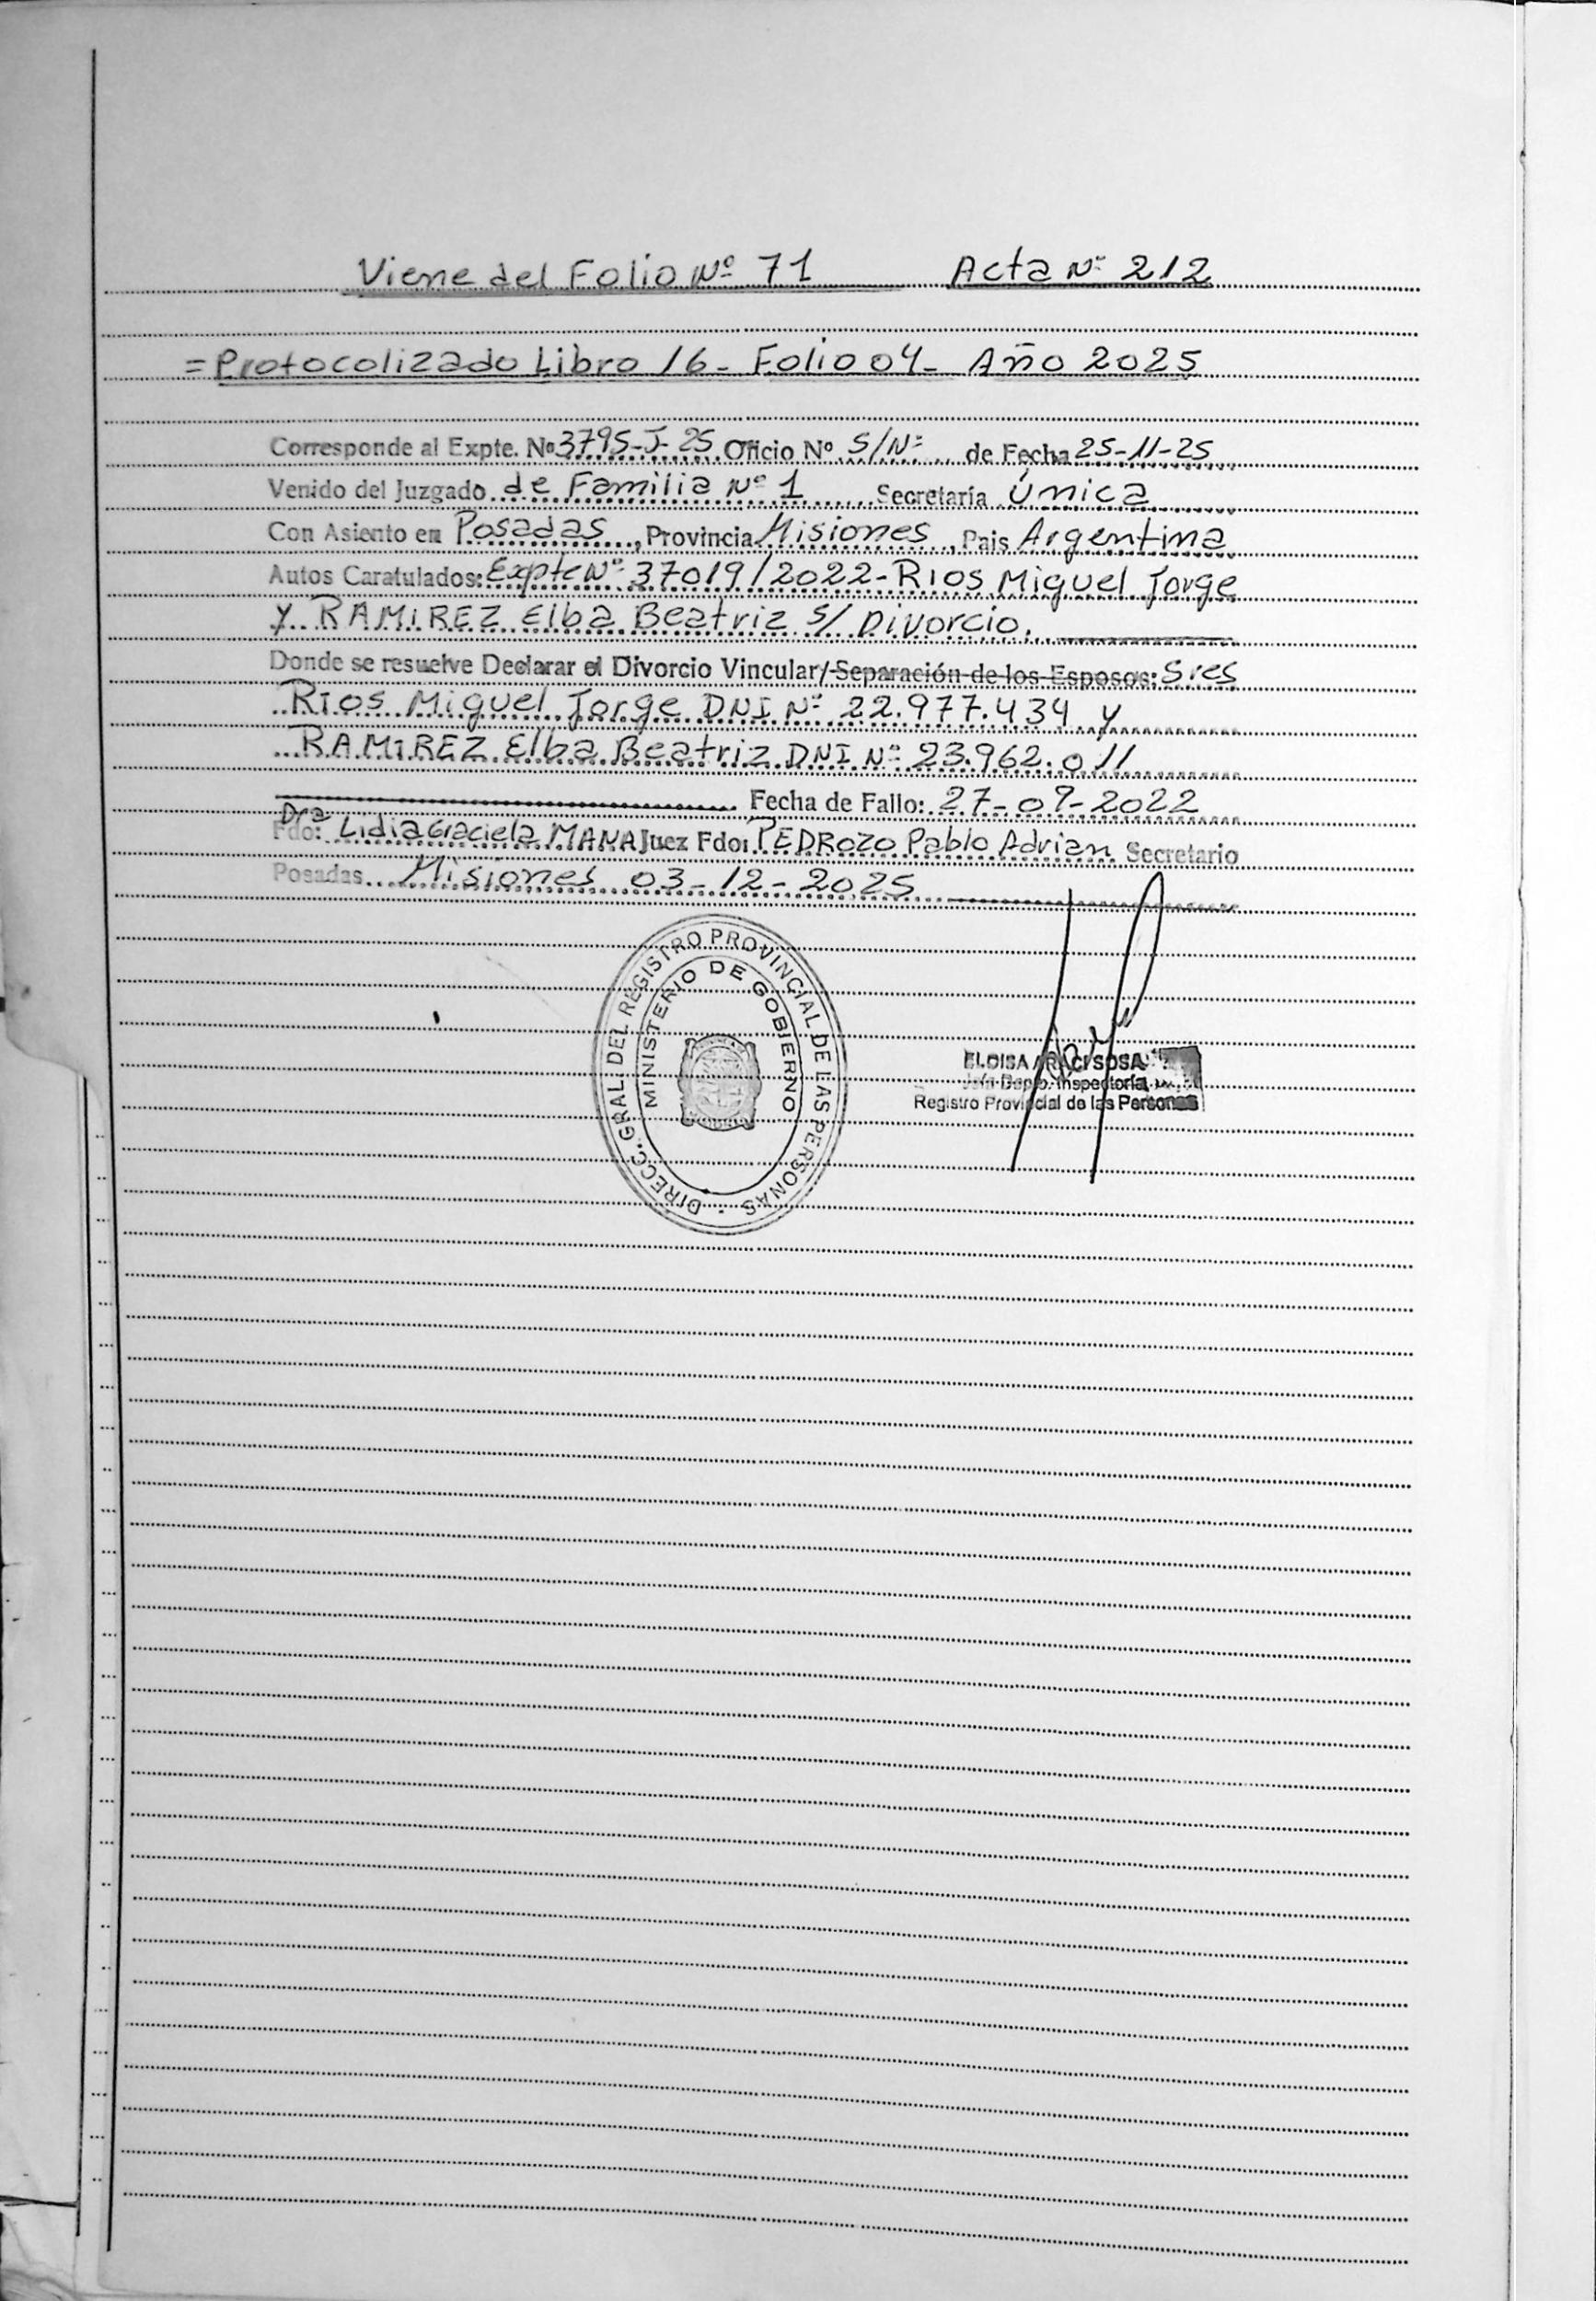 Viene del Folio Nº 71 Acta Nº 212
= Protocolizado Libro 16 - Folio 04 - Año 2025
Corresponde al Expte. Nº 3795-J-25 Oficio Nº S/Nº de Fecha 25-11-25
Venido del Juzgado de Familia Nº 1 Secretaría Única
Con Asiento en Posadas, Provincia Misiones, Pais Argentina
Autos Caratulados: Expte Nº 37019/2022 - RIOS Miguel Jorge
y RAMIREZ Elba Beatriz s/ Divorcio.
Donde se resuelve Declarar el Divorcio Vincular/Separación de los Esposos: Sres
RIOS Miguel Jorge DNI Nº 22.977.434 y
RAMIREZ Elba Beatriz DNI Nº 23.962.011
Fecha de Fallo: 27-09-2022
Dra
Fdo: Lidia Graciela MANA Juez Fdo: PEDROZO Pablo Adrian Secretario
Posadas Misiones 03-12-2025
DIRECC. GRAL. DEL REGISTRO PROVINCIAL DE LAS PERSONAS
MINISTERIO DE GOBIERNO
ELOISA ARACI SOSA
Jefa Depto. Inspectoría
Registro Provincial de las Personas